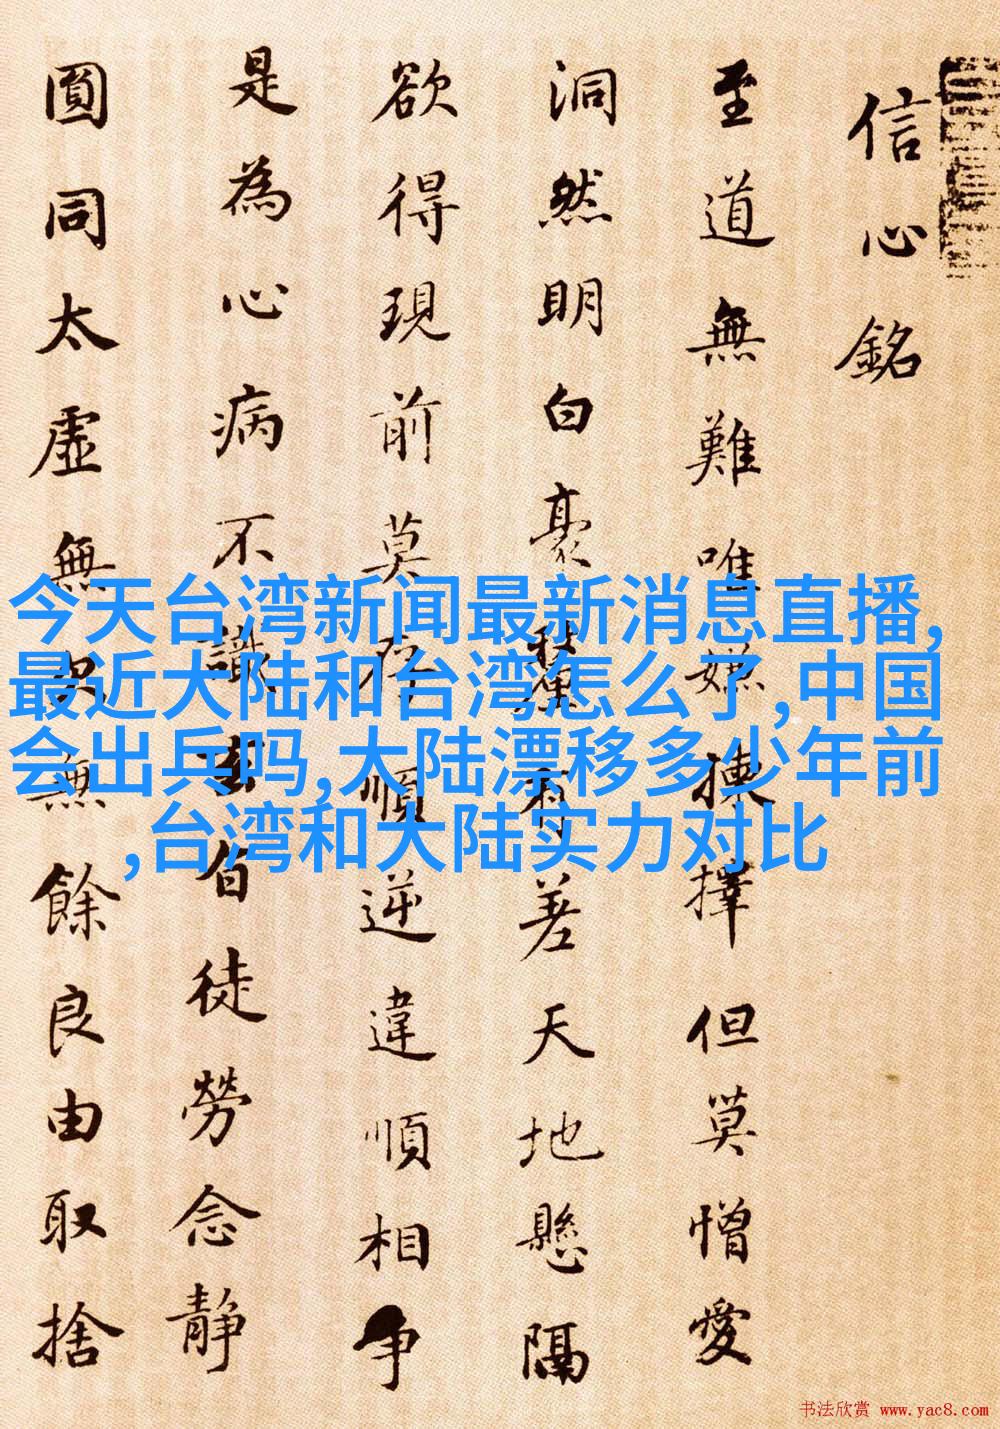 信心銘
至道無難唯嫌揀擇但莫憎愛
洞然明白豪釐有差天地懸隔
欲得現前莫存順逆違順相爭
是為心病不識玄旨徒勞念静
圓同太虛無欠無餘良由取捨
今天台湾新闻最新消息直播,
最近大陆和台湾怎么了,中国
会出兵吗,大陆漂移多少年前
,台湾和大陆实力对比
书法欣赏 www.yac8.com